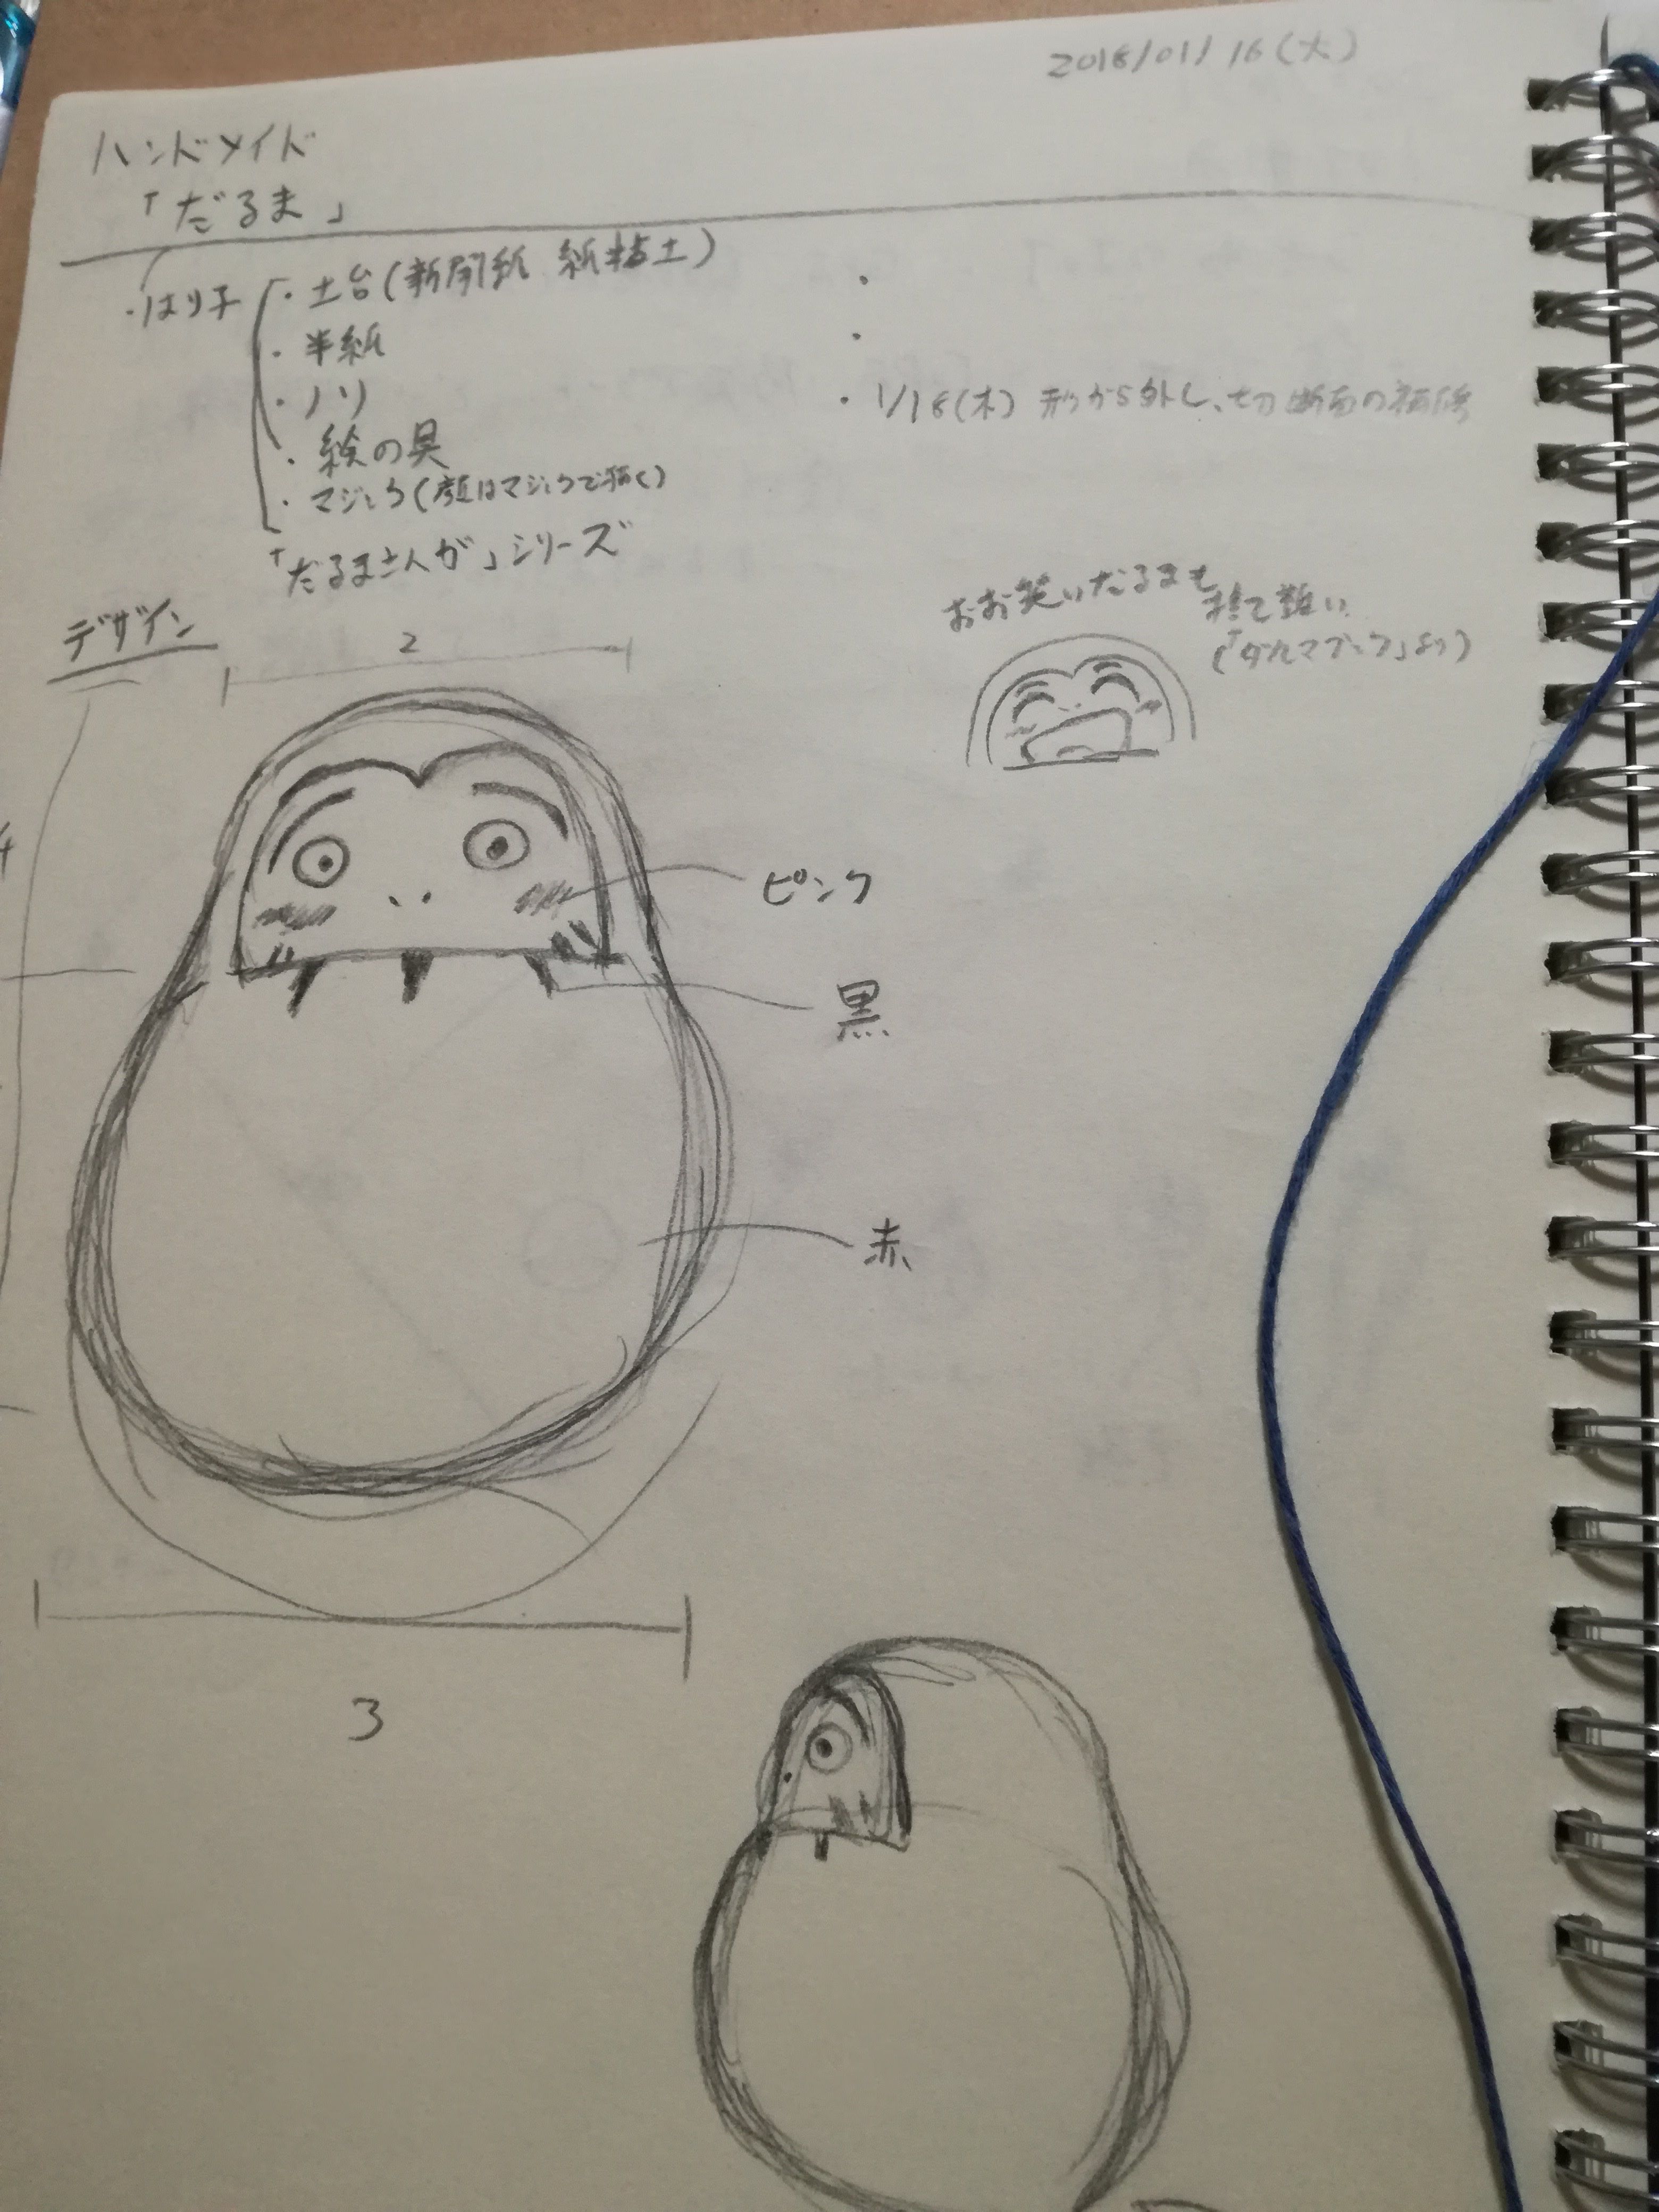 2018/01/16(火)
ハンドメイド
「だるま」
・はり子
・土台(新聞紙 紙粘土)
・半紙
・ノリ
・絵の具
・マジック(顔はマジックで描く)
「だるまさんが」シリーズ
・1/18(木) 形から外し、切断面の補修
おお笑いだるまも
捨て難い
(「ダルマブック」より)
デザイン
2
ピンク
黒
赤
3